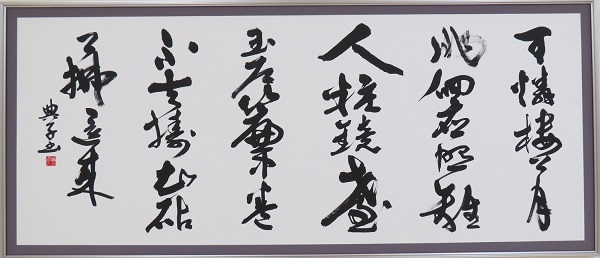 可憐樓上月
徘徊應照離
人粧鏡臺
玉戶簾中巻
不去擣衣砧
上拂還来
典子書